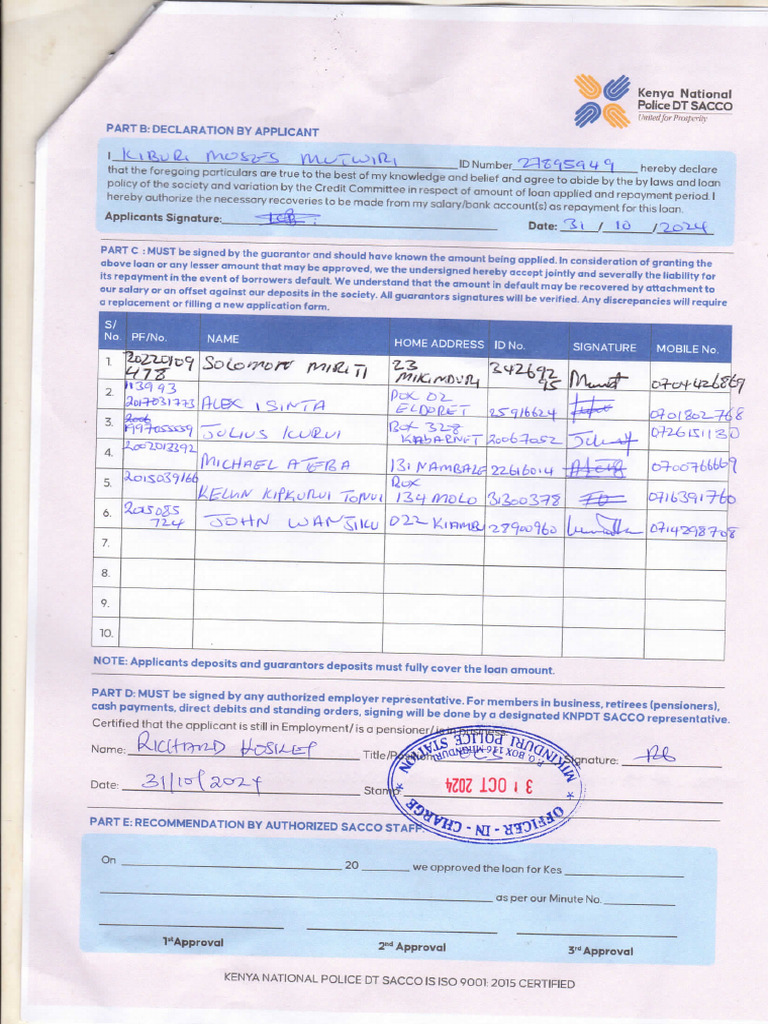 Kenya National
Police DT SACCO
United for Prosperity
PART B: DECLARATION BY APPLICANT
I KIBURI MOSES MUTWIRI ID Number 27895949 hereby declare
that the foregoing particulars are true to the best of my knowledge and belief and agree to abide by the by laws and loan
policy of the society and variation by the Credit Committee in respect of amount of loan applied and repayment period. I
hereby authorize the necessary recoveries to be made from my salary/bank account(s) as repayment for this loan.
Applicants Signature: Date: 31 / 10 / 2024
PART C : MUST be signed by the guarantor and should have known the amount being applied. In consideration of granting the
above loan or any lesser amount that may be approved, we the undersigned hereby accept jointly and severally the liability for
its repayment in the event of borrowers default. We understand that the amount in default may be recovered by attachment to
our salary or an offset against our deposits in the society. All guarantors signatures will be verified. Any discrepancies will require
a replacement or filling a new application form.
S/No. PF/No. NAME HOME ADDRESS ID No. SIGNATURE MOBILE No.
1. 20220109478 SOLOMON MIRITI 23 MIKINDURI 34269295 0704426869
2. 113993 2017031773 ALEX ISINTA BOX 02 ELDORET 25916624 0701802768
3. 1997055039 JULIUS KURUI BOX 328 KABARNET 20067052 0726151130
4. 2002012392 MICHAEL ATEBA 131 NAMBALE 22616014 0700766669
5. 2015039166 KELVIN KIPKURUI TONUI BOX 134 MOLO 31300378 0716391760
6. 2015085724 JOHN WANJIKU 022 KIAMBU 28900960 0714298708
7.
8.
9.
10.
NOTE: Applicants deposits and guarantors deposits must fully cover the loan amount.
PART D: MUST be signed by any authorized employer representative. For members in business, retirees (pensioners),
cash payments, direct debits and standing orders, signing will be done by a designated KNPDT SACCO representative.
Certified that the applicant is still in Employment/ is a pensioner/ is in business.
Name: RICHARD KOSKEI Title/Position OCS Signature:
Date: 31/10/2024 Stamp
OFFICER - IN - CHARGE
31 OCT 2024
P.O. BOX 116 MIKINDURI
MIKINDURI POLICE STATION
PART E: RECOMMENDATION BY AUTHORIZED SACCO STAFF.
On 20 we approved the loan for Kes
as per our Minute No.
1st Approval 2nd Approval 3rd Approval
KENYA NATIONAL POLICE DT SACCO IS ISO 9001: 2015 CERTIFIED